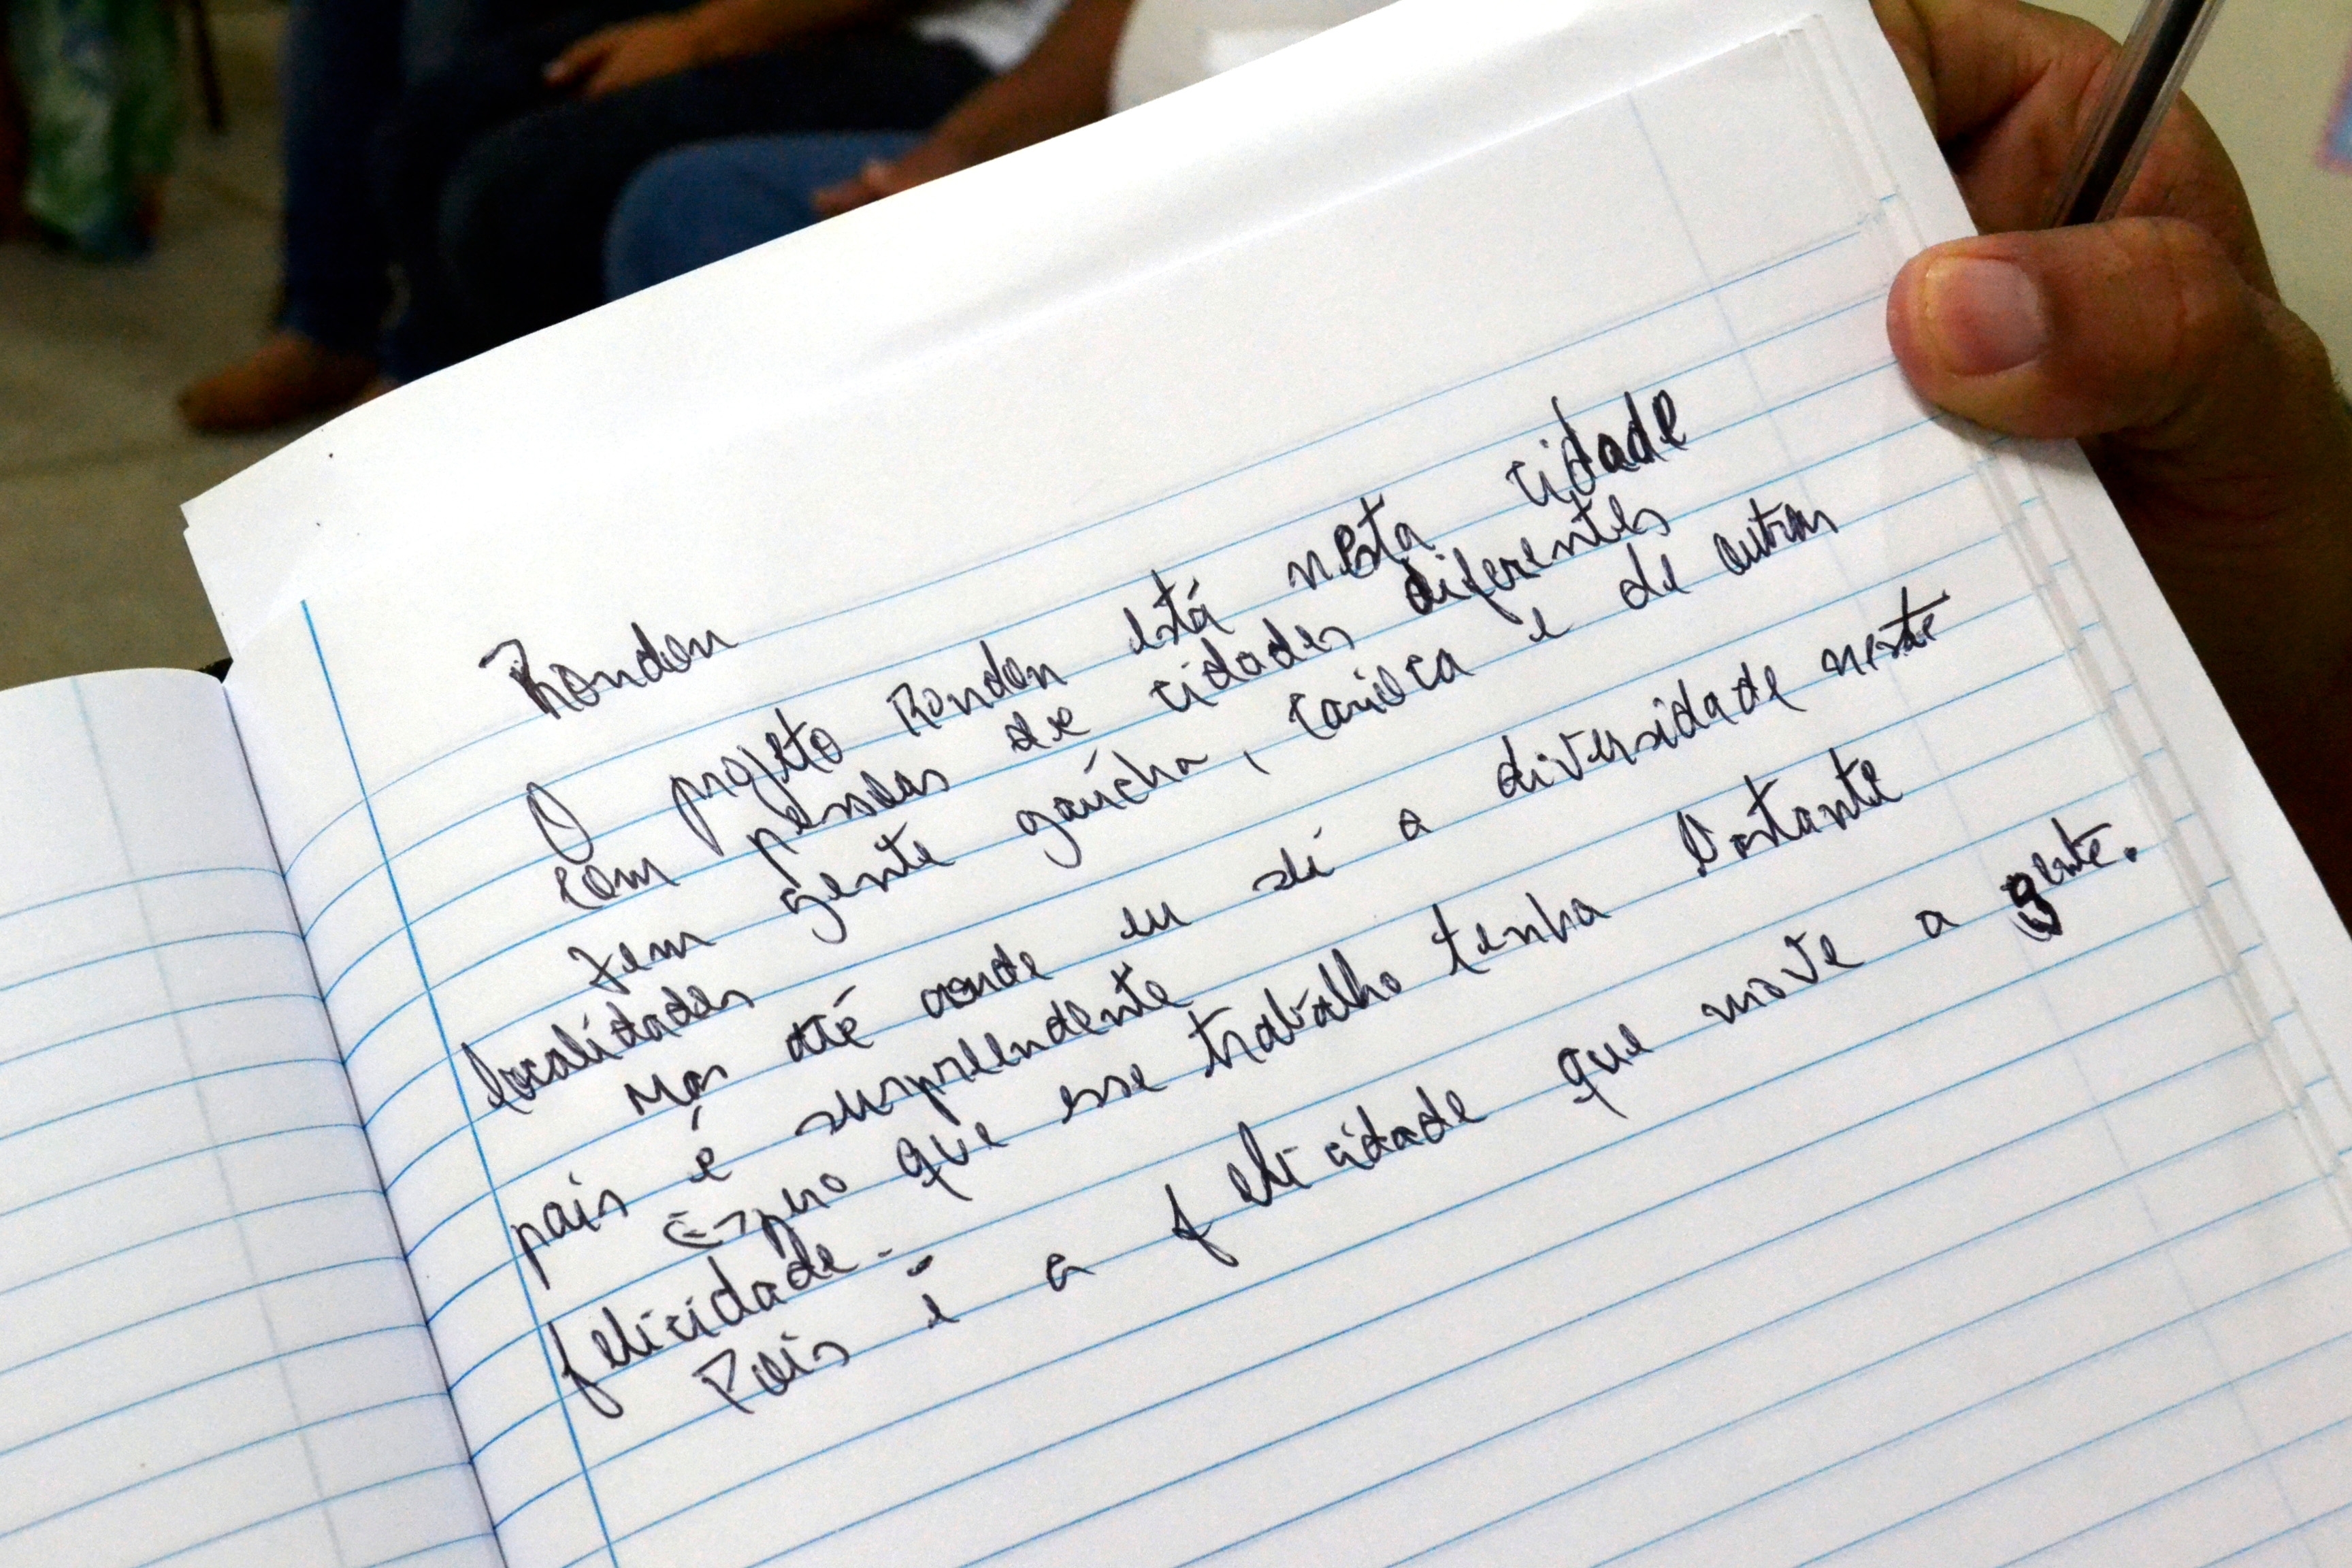 Rondon
O projeto Rondon está nesta cidade
com pessoas de cidades diferentes
Tem gente gaúcha, carioca e de outras
localidades
Mas até aonde eu sei a diversidade neste
pais é surpreendente
Espero que esse trabalho tenha bastante
felicidade.
Pois é a felicidade que move a gente.